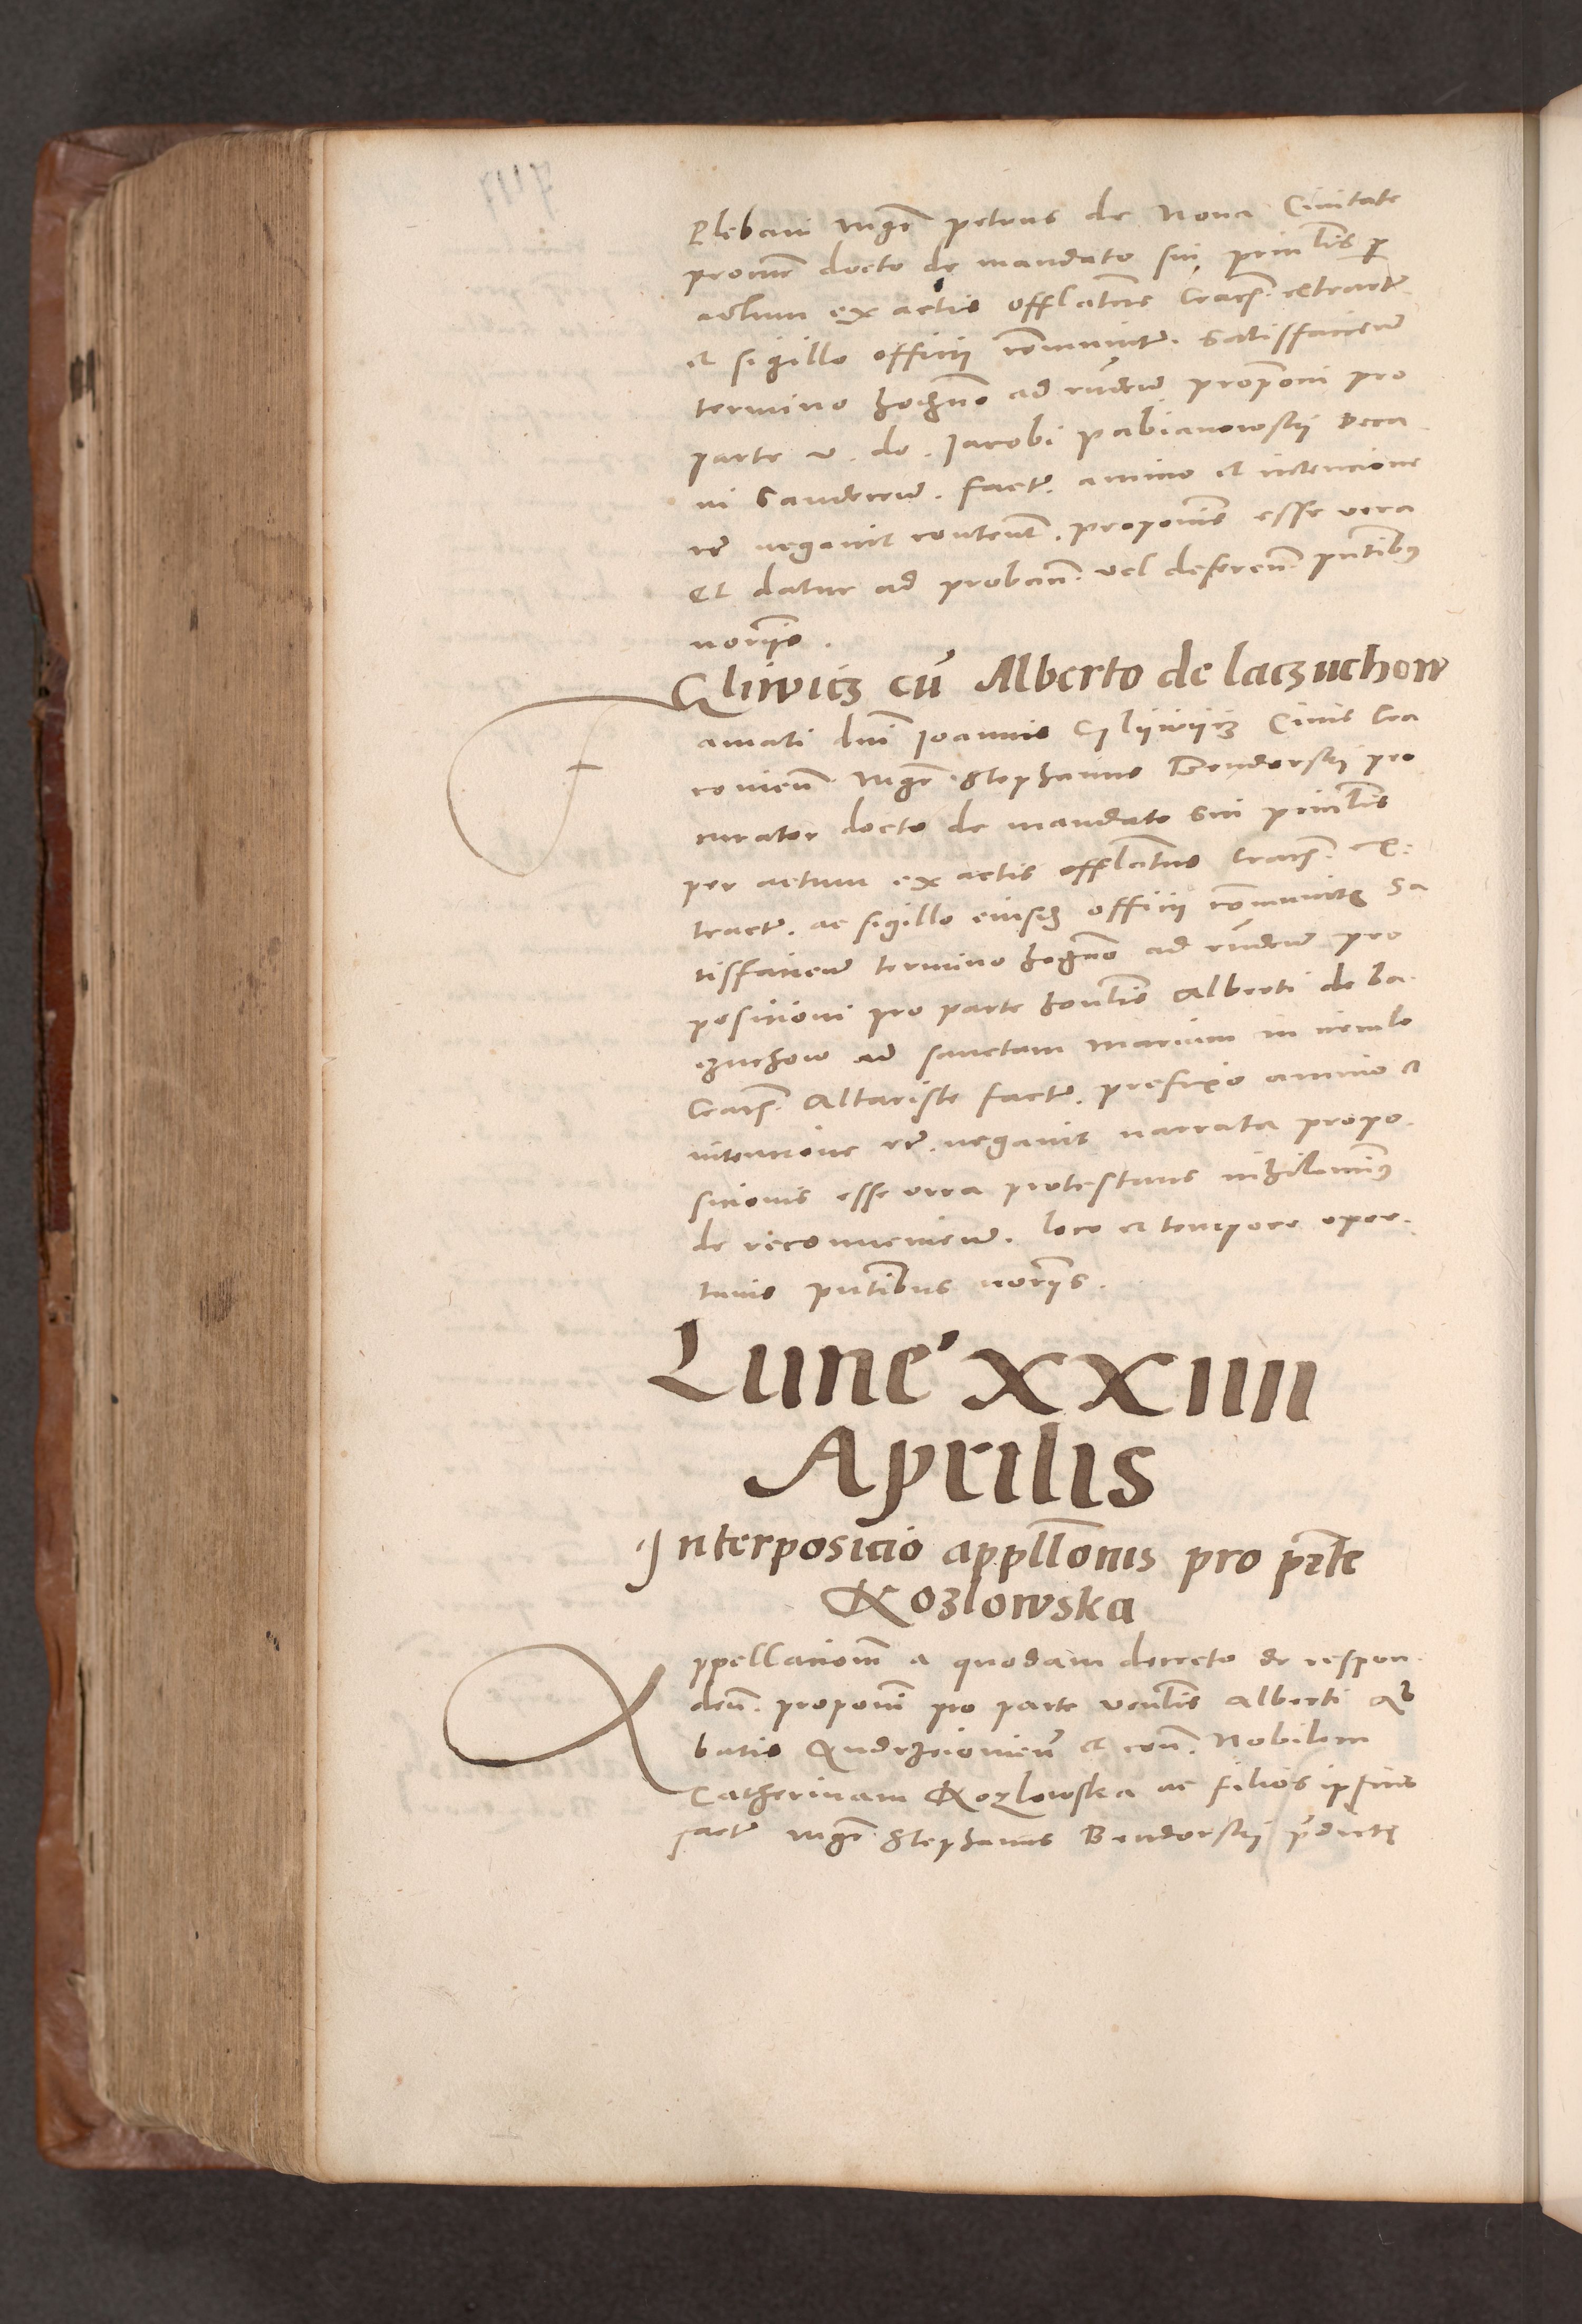 Plebani mgr̄ petrus de Nova Civitate
procur̄ docto de mandato sui prin̄lis p̱
actum ex actis offlatus Cracs̄. extract̄.
et sigillo officii com̄unit̄. Satisfacieñ
termino hodierno ad rn̄deñ propōni pro
parte v. do. Jacobi Pabianowskij Deca
ni Sandecen̄. fact̄. animo et intencione
rē negavit content̄. proponis esse vera
Et datur ad proband̄. vel deferend̄ pn̄tib9
nor̄ijs.
Gliwicz cū Alberto de laczuchow
Famati dnī Joannis Glijwijcz Civis Cra
covien̄ mgr̄ Stephanus Bendorskij pro
curator docto de mandato sui prin̄lis
per actum ex actis offlatus Cracs̄. ex:
tract̄. ac sigillo eiusdz officii com̄unitꝫ Sa
tisfacieñ termino hodierno ad rn̄deñ pro
posicioni pro parte honlis Alberti de La
czuchow ad sanctam Mariam in circulo
Cracs̄ Altariste fact̄. prefixo animo et
intencione rē. negavit narrata propo.
sicionis esse vera protestans nihilomin9
de reconvenieñ. loco et tempore opor.
tunis pn̄tibus nor̄ijs.
Lune XXIIII
Aprilis
Interposicio appll̄onis pro pr̄te
Kozlowska
Appellacionē a quodam decreto de respon.
den̄. proponī pro parte ven̄lis Alberti Ab
batis Andrzeiovien̄ et con̄. Nobilem
Catherinam Kozlowska ac filios ipsius
fact̄ mgr̄ Stephanus Bendorskij p̄dictꝫ